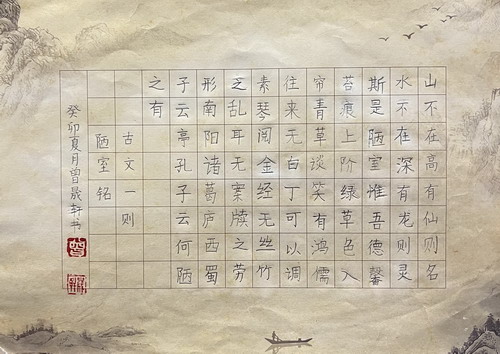 山不在高有仙则名
水不在深有龙则灵
斯是陋室惟吾德馨
苔痕上阶绿草色入
帘青草淡笑有鸿儒
往来无白丁可以调
素琴阅金经无丝竹
之乱耳无案牍之劳
形南阳诸葛庐西蜀
子云亭孔子云何陋
之有
古文一则
陋室铭
癸卯夏月曾晟轩书